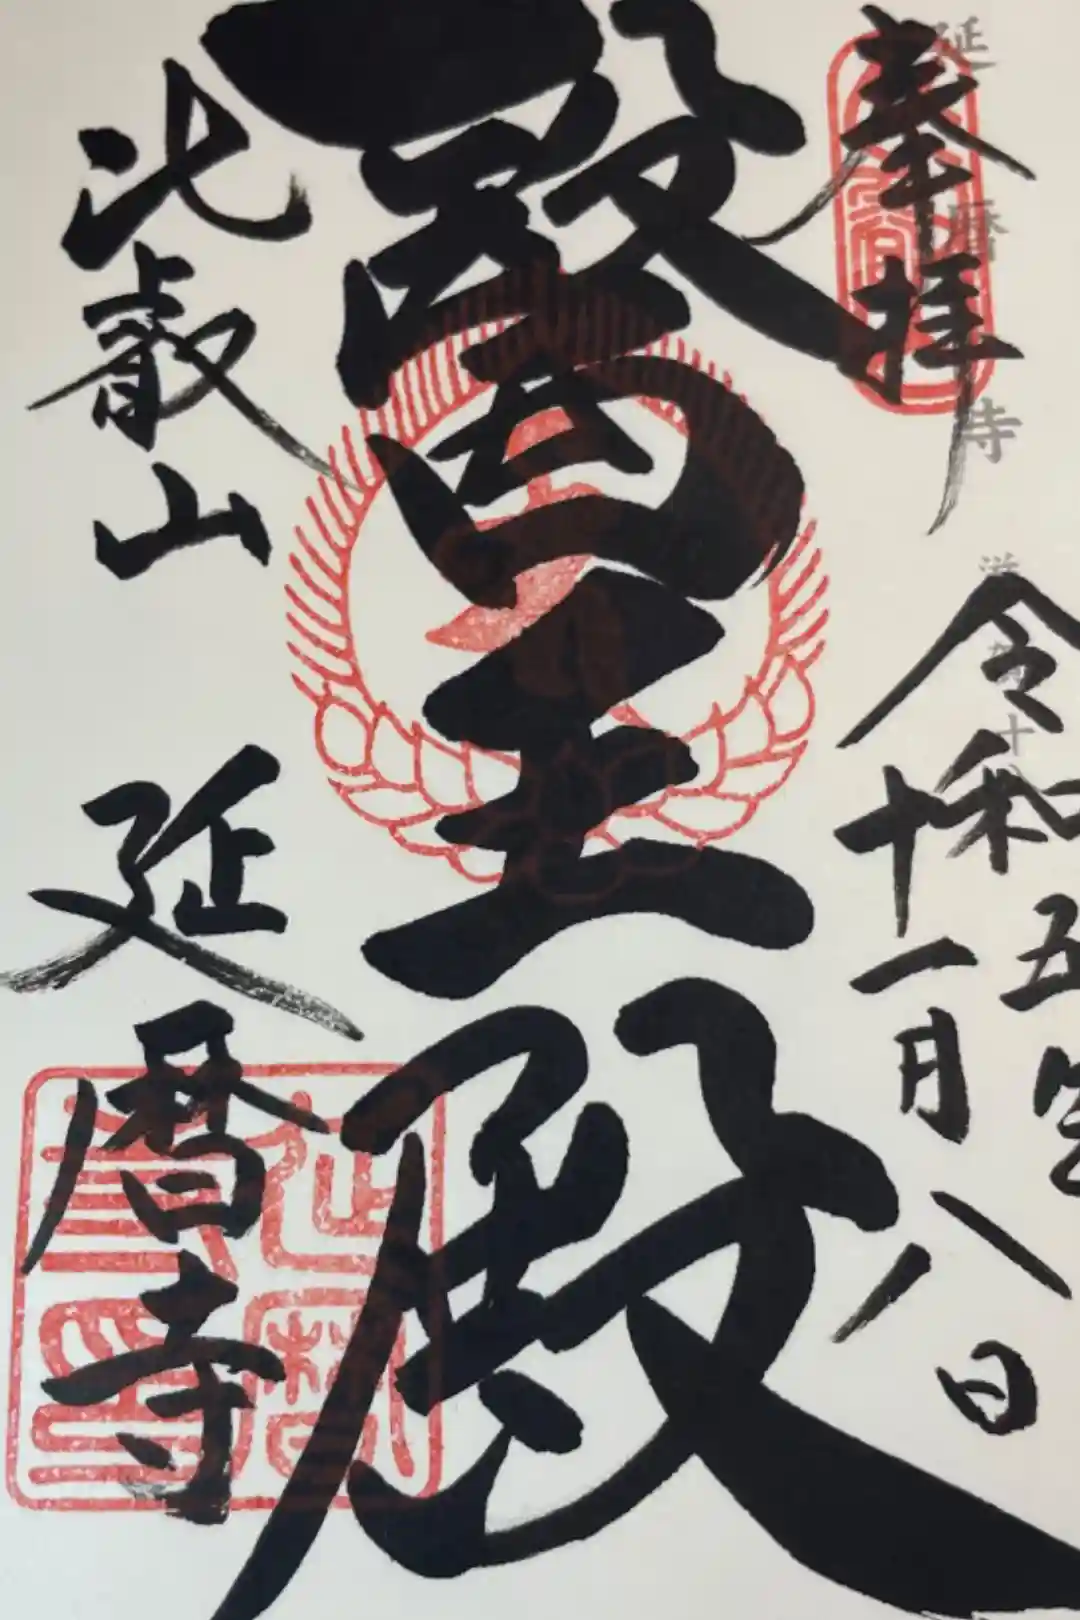 奉拝
延暦寺
令和五年
十一月八日
醫王殿
比叡山
延暦寺